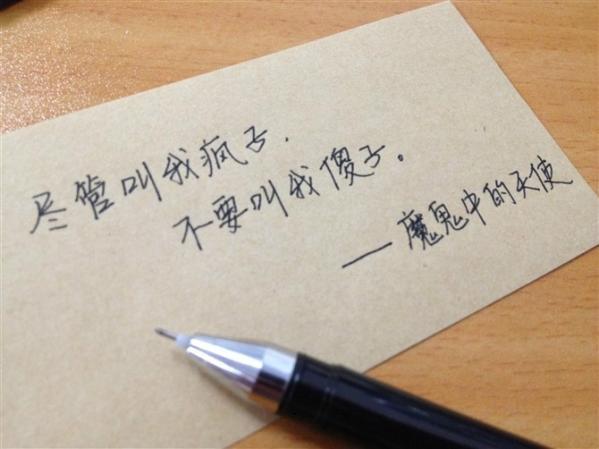 尽管叫我疯子.
不要叫我傻子。
——魔鬼中的天使